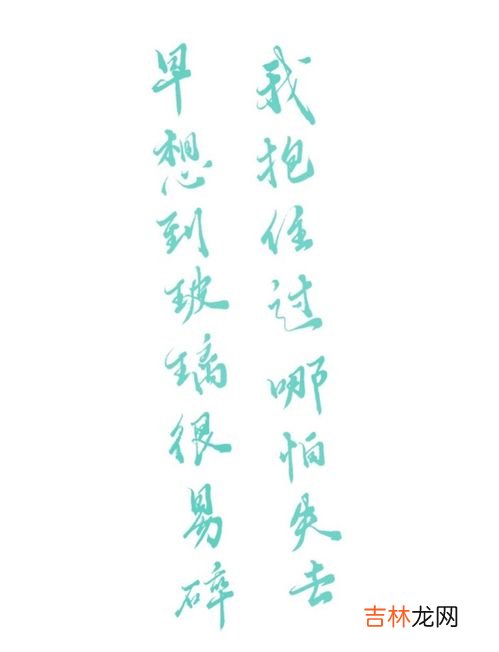 我抱住过哪怕失去
早想到玻璃很易碎
吉林龙网